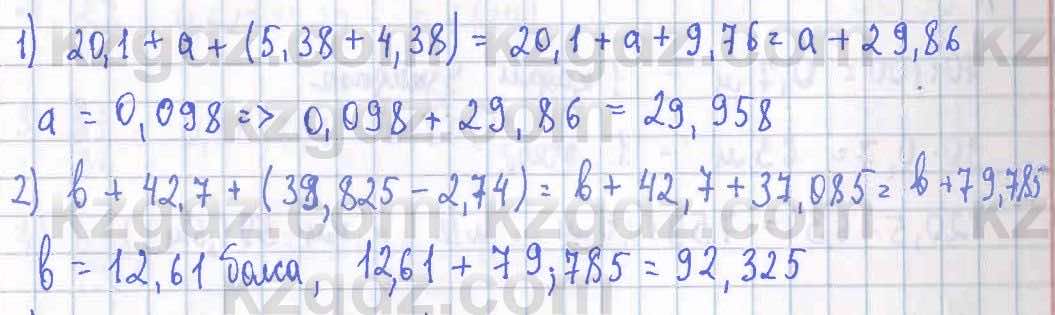 1) 20,1 + a + (5,38 + 4,38) = 20,1 + a + 9,76 = a + 29,86
a = 0,098 => 0,098 + 29,86 = 29,958
2) b + 42,7 + (39,825 - 2,74) = b + 42,7 + 37,085 = b + 79,785
b = 12,61 болса, 12,61 + 79,785 = 92,325